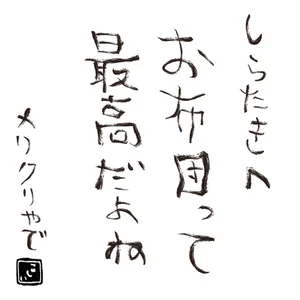 しらたきへ
お布団って
最高だよね
メリクリやで